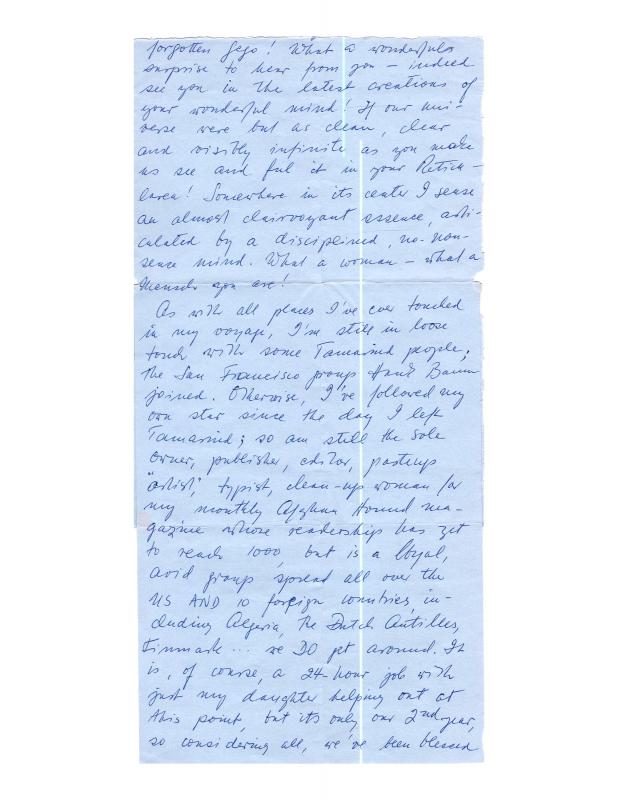 forgotten Gego! What a wonderful
surprise to hear from you – indeed
see you in the latest creations of
your wonderful mind! If our uni-
verse were but as clean, clear
and visibly infinite as you make
us see and feel it in your Reticu-
larea! Somewhere in its center I sense
an almost clairvoyant essence, arti-
culated by a disciplined, no-non-
sense mind. What a woman – what a
Mensch you are!
As with all places I've ever touched
in my voyage, I'm still in loose
touch with some Tamarind people;
the San Francisco group Hank Baum
joined. Otherwise, I've followed my
own star since the day I left
Tamarind; so am still the sole
owner, publisher, editor, pasteup
"artist", typist, clean-up woman for
my monthly Afghan Hound ma-
gazine whose readership has yet
to reach 1000, but is a loyal,
avid group spread all over the
US AND 10 foreign countries, in-
cluding Algeria, the Dutch Antilles,
Finmark ... we DO get around. It
is, of course, a 24-hour job with
just my daughter helping out at
this point, but its only our 2nd year,
so considering all, we've been blessed